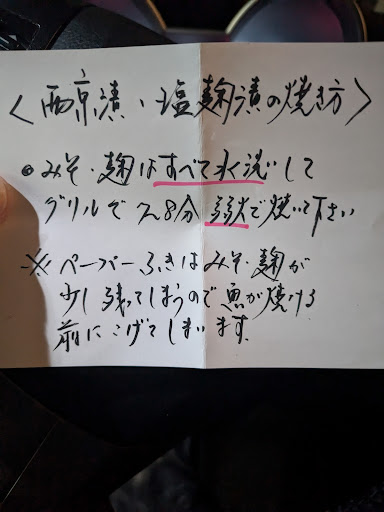 〈西京漬・塩麹漬の焼き方〉
◎みそ・麹はすべて水洗いして
グリルで7~8分弱火で焼いて下さい
※ペーパーふきはみそ・麹が
少し残ってしまうので魚が焼ける
前にこげてしまいます。